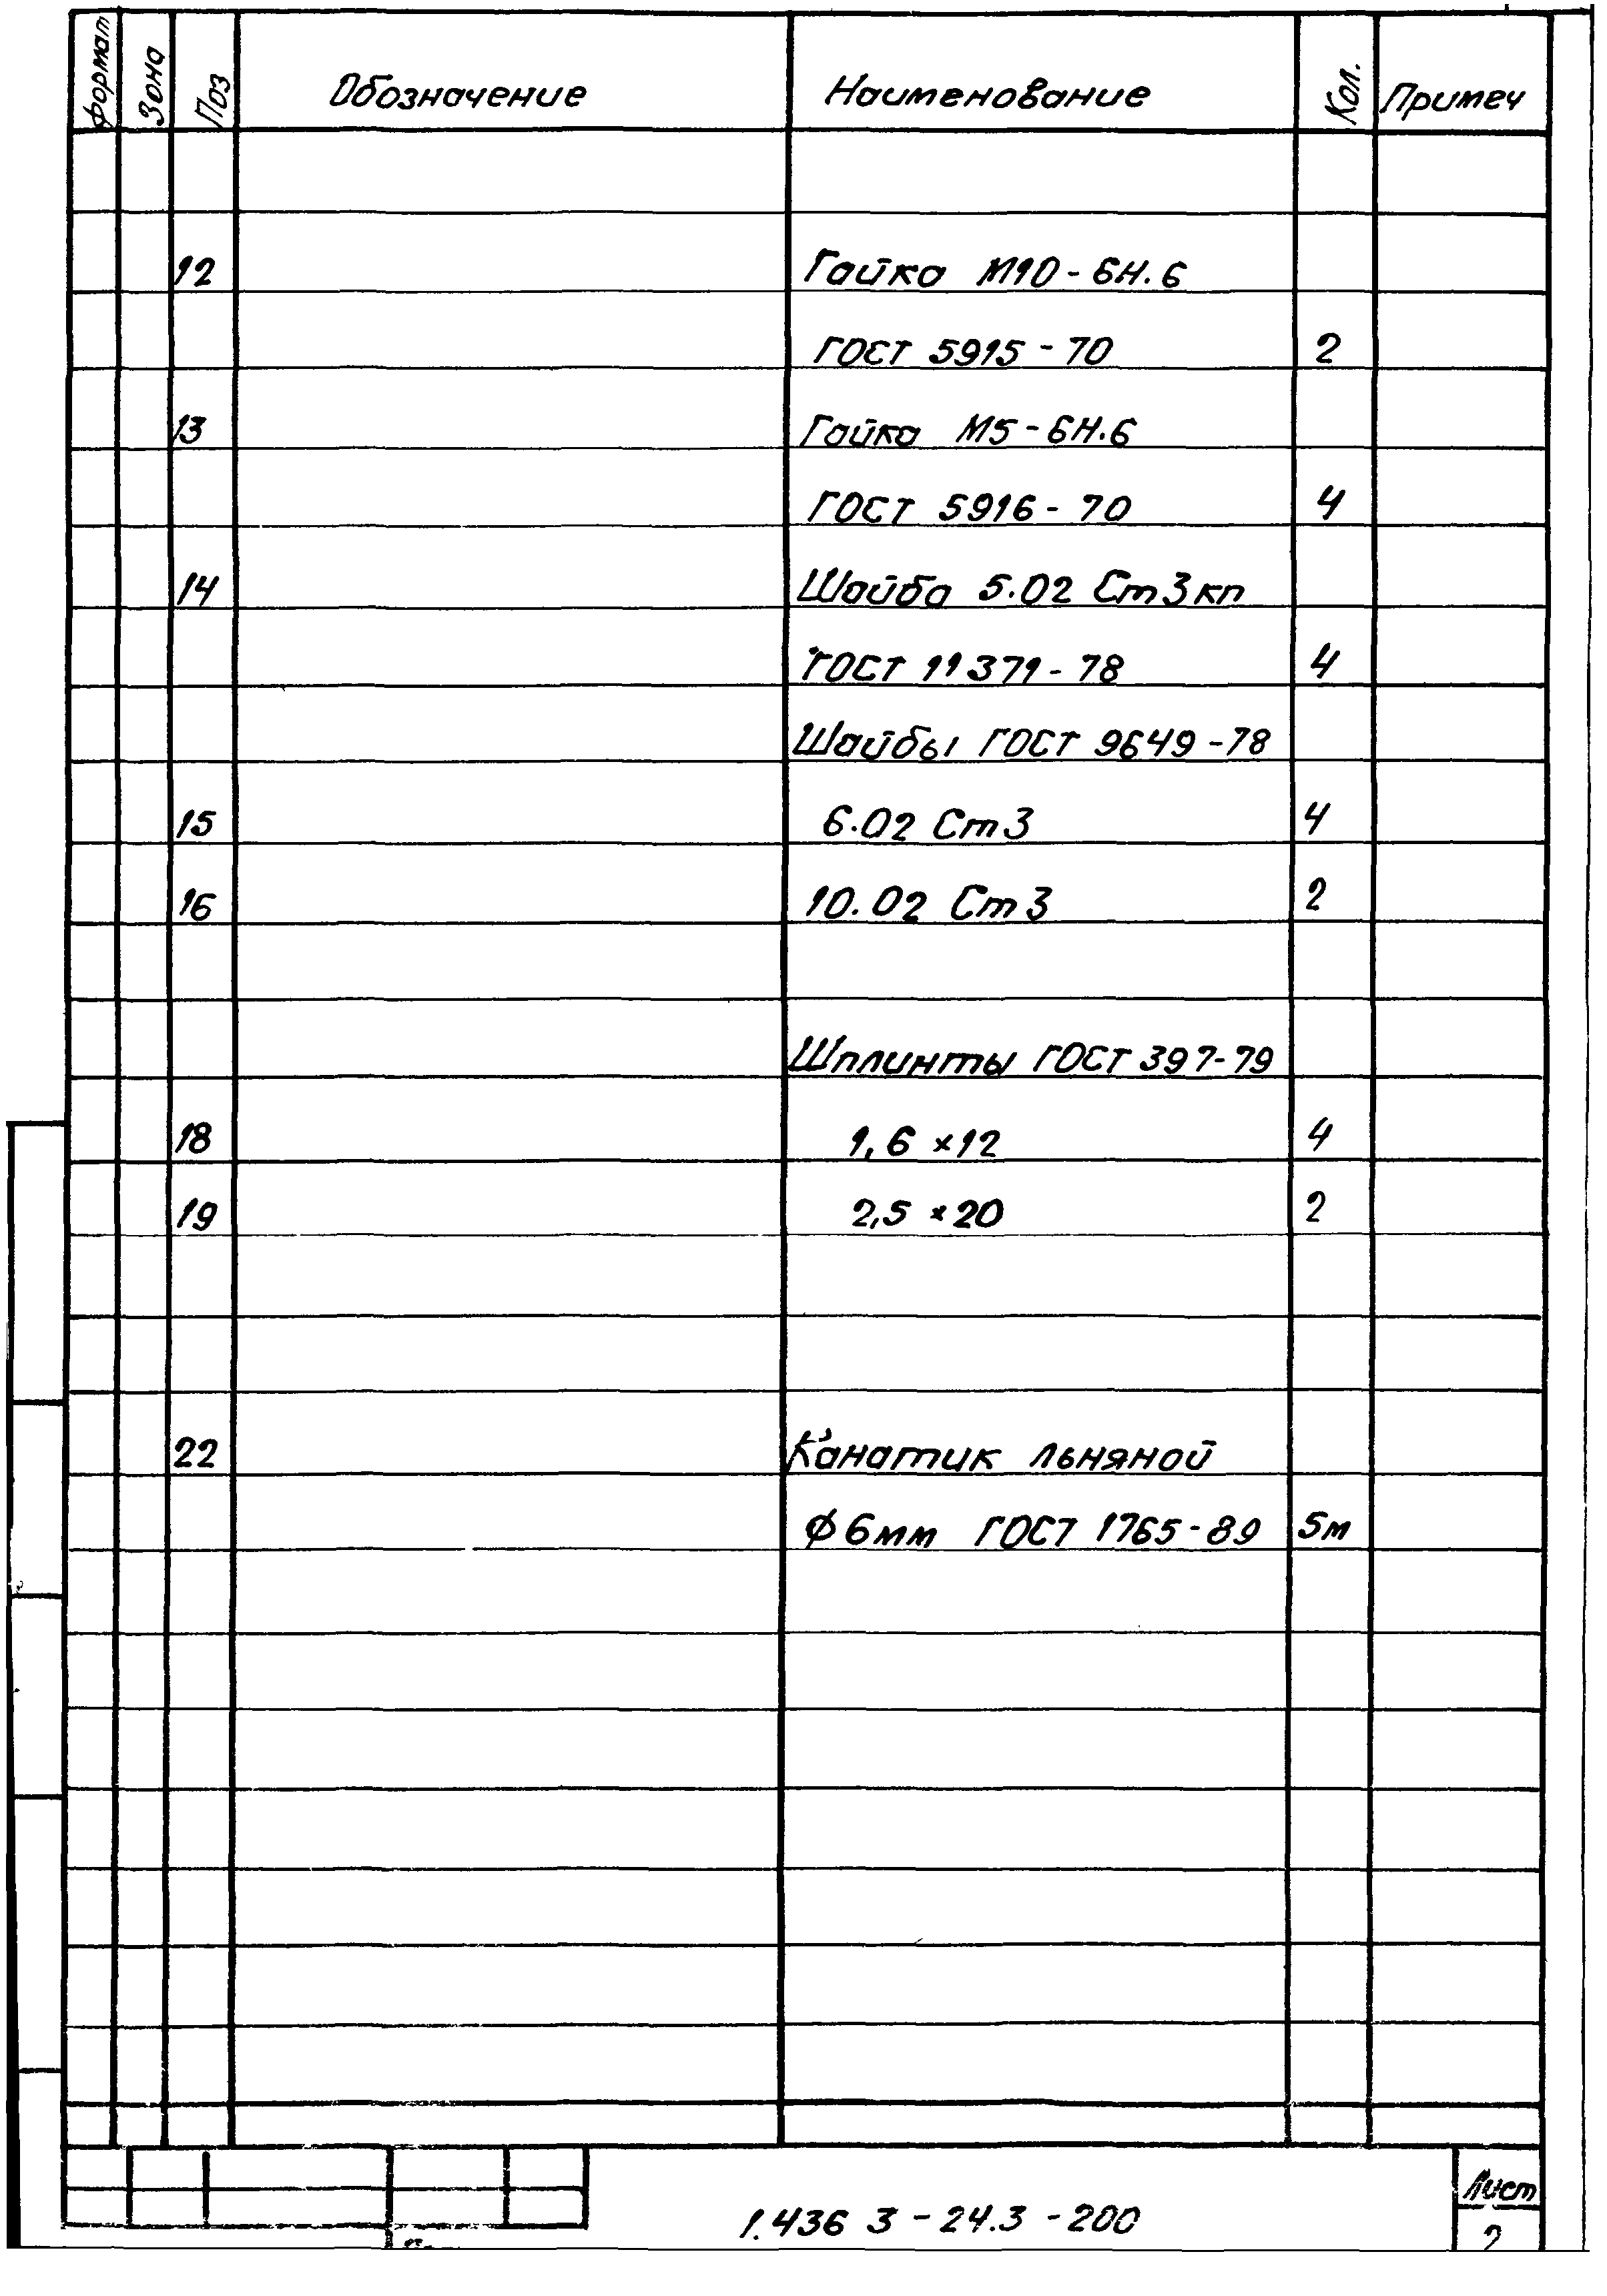 Формат Зона Поз Обозначение Наименование Кол. Примеч
12 Гайка М10-6Н.6
ГОСТ 5915-70 2
13 Гайка М5-6Н.6
ГОСТ 5916-70 4
14 Шайба 5.02 Ст3кп
ГОСТ 11371-78 4
Шайбы ГОСТ 9649-78
15 6.02 Ст3 4
16 10.02 Ст3 2
Шплинты ГОСТ 397-79
18 1,6 ×12 4
19 2,5 ×20 2
22 Канатик льняной
ф6мм ГОСТ 1765-89 5м
Лист
1.436 3-24.3-200 2